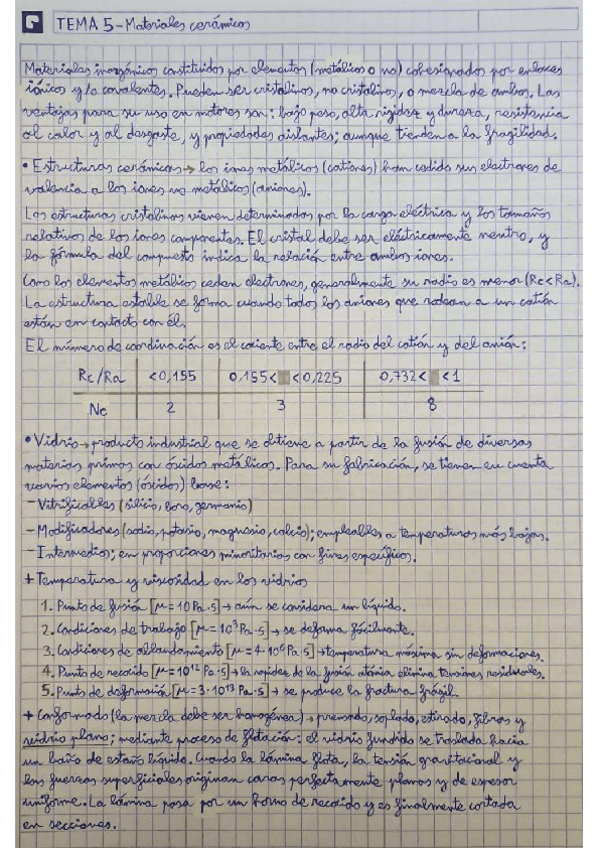 TEMA 5-Materiales cerámicos
Materiales inorgánicos constituidos por elementos (metálicos o no) cohesionados por enlaces
iónicos y/o covalentes. Pueden ser cristalinos, no cristalinos, o mezcla de ambos. Las
ventajas para su uso en motores son: bajo peso, alta rigidez y dureza, resistencia
al calor y al desgaste, y propiedades aislantes; aunque tienden a la fragilidad.
• Estructuras cerámicas → los iones metálicos (cationes) han cedido sus electrones de
valencia a los iones no metálicos (aniones).
Las estructuras cristalinas vienen determinadas por la carga eléctrica y los tamaños
relativos de los iones componentes. El cristal debe ser eléctricamente neutro, y
la fórmula del compuesto indica la relación entre ambos iones.
Como los elementos metálicos ceden electrones, generalmente su radio es menor (Rc<Ra).
La estructura estable se forma cuando todos los aniones que rodean a un catión
están en contacto con él.
El número de coordinación es el cociente entre el radio del catión y del anión:
Rc/Ra <0,155 0,155< <0,225 0,732< <1
Nc 2 3 8
• Vidrio → producto industrial que se obtiene a partir de la fusión de diversas
materias primas con óxidos metálicos. Para su fabricación, se tienen en cuenta
varios elementos (óxidos) base:
- Vitrificables (silicio, boro, germanio)
- Modificadores (sodio, potasio, magnesio, calcio); empleables a temperaturas más bajas.
- Intermedios; en proporciones minoritarias con fines específicos.
+ Temperatura y viscosidad en los vidrios
1. Punto de fusión [μ=10 Pa·s] → aún se considera un líquido.
2. Condiciones de trabajo [μ=10³ Pa·s] → se deforma fácilmente.
3. Condiciones de ablandamiento [μ=4·10⁶ Pa·s] → temperatura máxima sin deformaciones.
4. Punto de recocido [μ=10¹² Pa·s] → la rapidez de la fusión atómica elimina tensiones residuales.
5. Punto de deformación [μ=3·10¹³ Pa·s] → se produce la fractura frágil.
+ Conformado (la mezcla debe ser homogénea) → prensado, soplado, estirado, fibras y
vidrio plano; mediante proceso de flotación: el vidrio fundido se traslada hacia
un baño de estaño líquido. Cuando la lámina flota, la tensión gravitacional y
las fuerzas superficiales originan caras perfectamente planas y de espesor
uniforme. La lámina pasa por un horno de recocido y es finalmente cortada
en secciones.